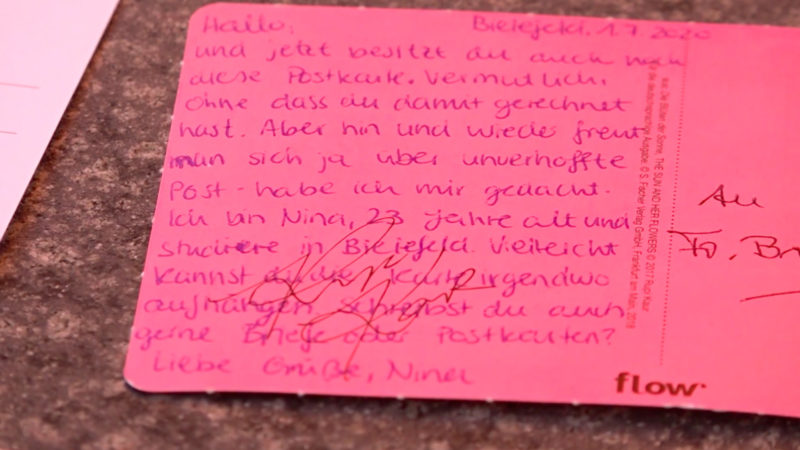 Hallo, Bielefeld, 1.7.2020
und jetzt besitzt du auch noch
diese Postkarte. Vermutlich,
ohne dass du damit gerechnet
hast. Aber hin und wieder freut
man sich ja über unverhoffte
Post - habe ich mir gedacht.
Ich bin Nina, 23 Jahre alt und
studiere in Bielefeld. Vielleicht
kannst du die Karte irgendwo
aufhängen. Schreibst du auch
gerne Briefe oder Postkarten?
Liebe Grüße, Nina
flow
aus: Die Blüten der Sonne, THE SUN AND HER FLOWERS © 2017 Rupi Kaur
für die deutschsprachige Ausgabe: © S. Fischer Verlag GmbH, Frankfurt am Main, 2018
An
Fr. Br